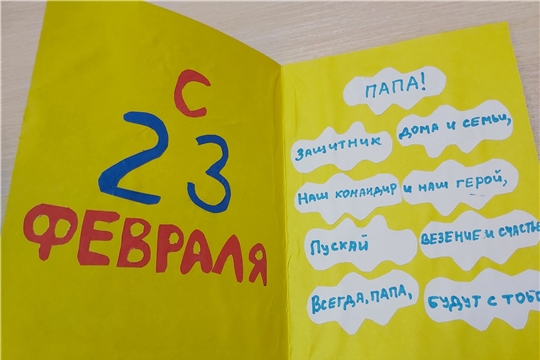 С
23
ФЕВРАЛЯ
ПАПА!
ЗАЩИТНИК ДОМА И СЕМЬИ,
НАШ КОМАНДИР И НАШ ГЕРОЙ,
ПУСКАЙ ВЕЗЕНИЕ И СЧАСТЬЕ
ВСЕГДА, ПАПА, БУДУТ С ТОБО